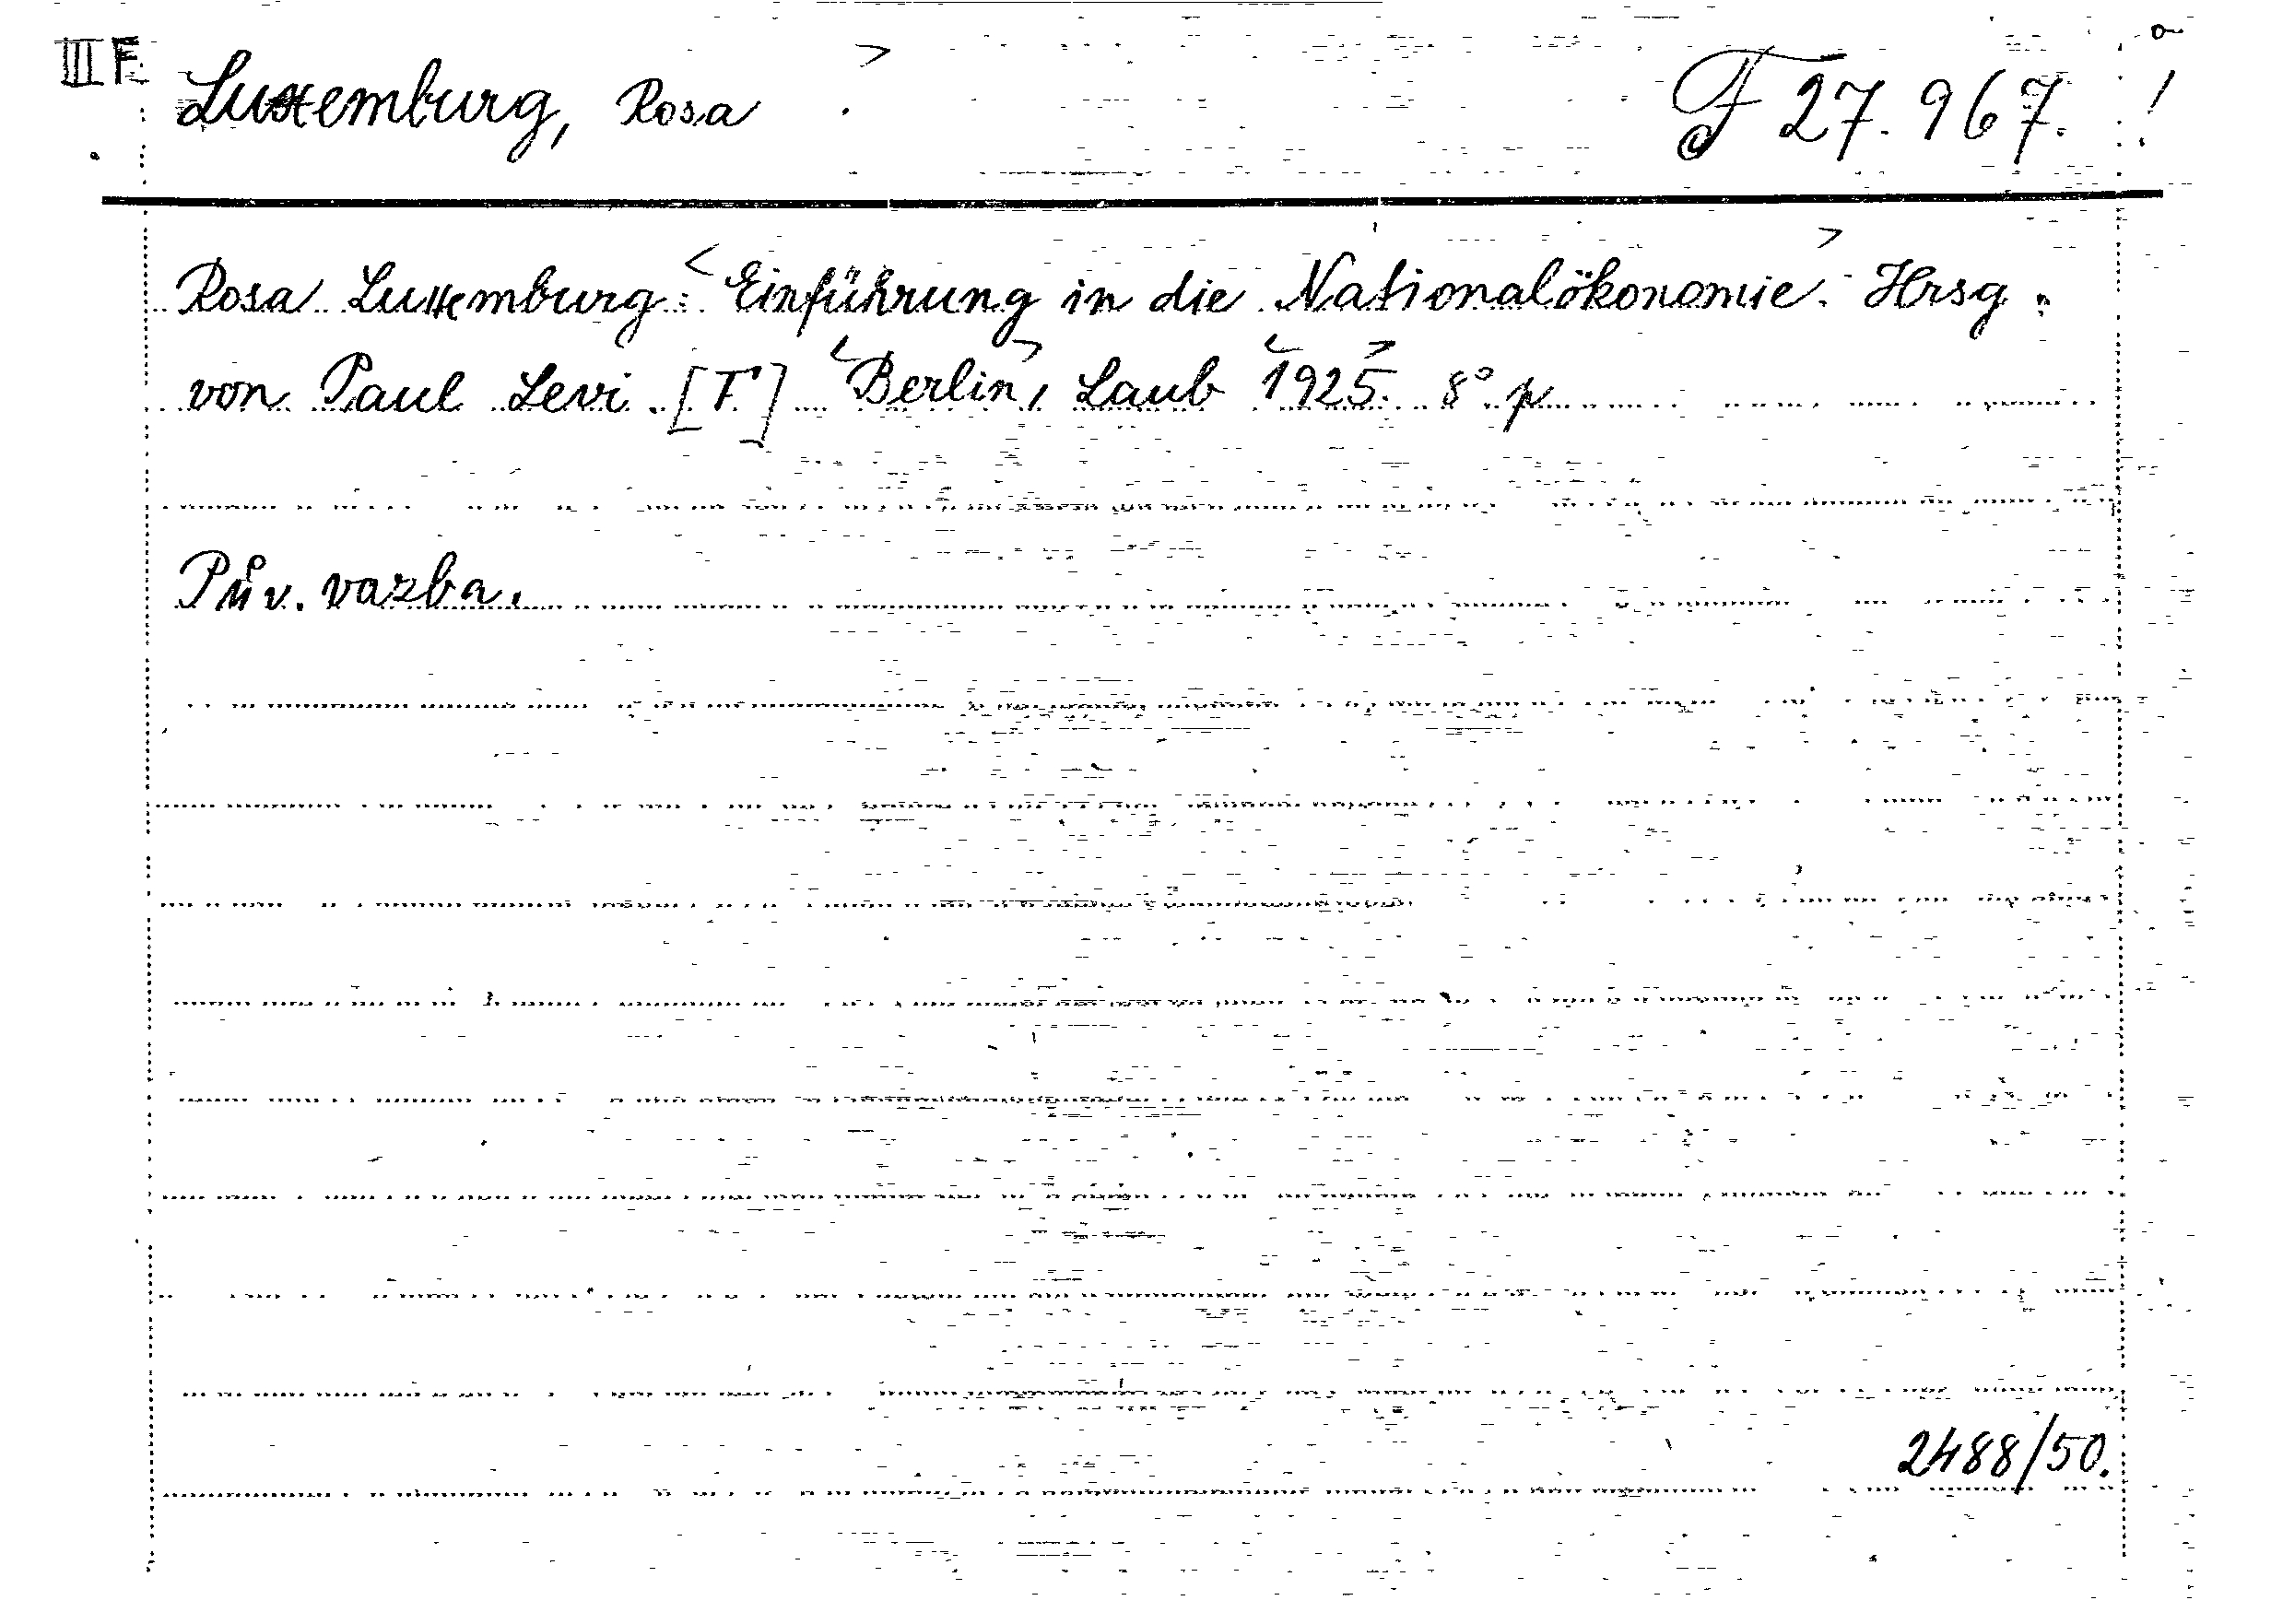 III F
Luxemburg, Rosa > F 27.967. !
Rosa Luxemburg: <Einführung in die Nationalökonomie.> Hrsg.
von Paul Levi. [T.] <Berlin>, Laub <1925>. 8° p
Pův. vazba.
2488/50.